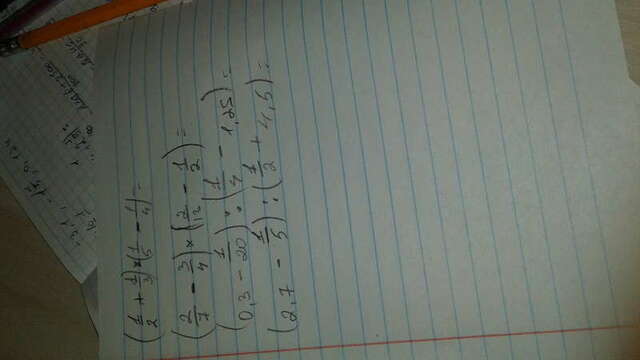 -3,1
(1/2 + 1/3) × (1/5 - 1/4) =
(2/7 - 3/4) × (2/13 - 1/2) =
(0,3 - 1/20) : (1/4 - 1,25) =
(2,7 - 1/5) : (1/2 + 4,5) =